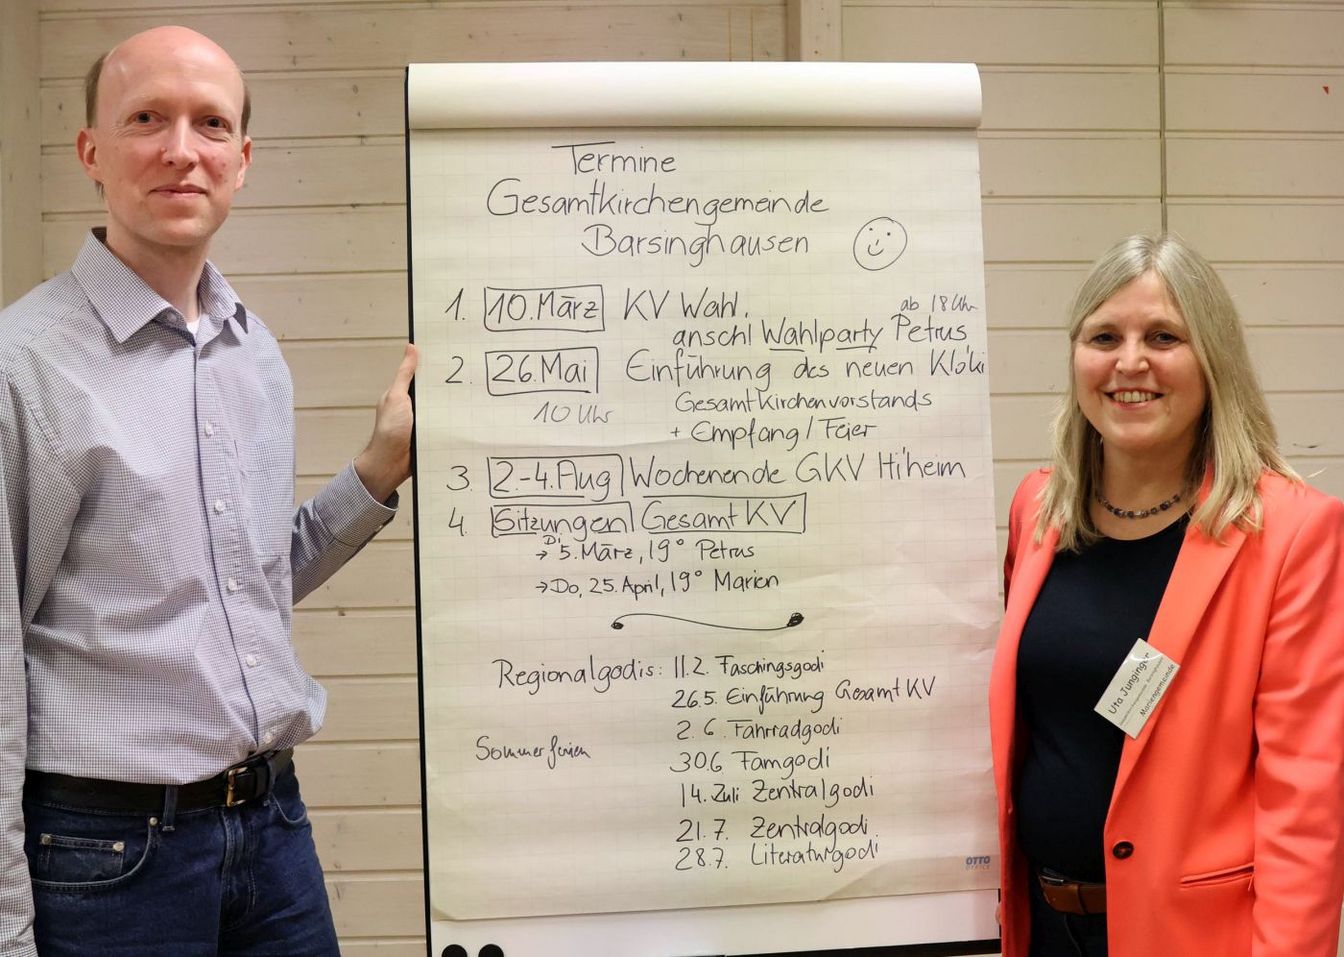 Termine
Gesamtkirchengemeinde
Barsinghausen
1. 10. März KV Wahl, ab 18 Uhr
anschl Wahlparty Petrus
2. 26. Mai Einführung des neuen Klöki
10 Uhr Gesamtkirchenvorstands
+ Empfang / Feier
3. 2.-4. Aug Wochenende GKV Hi'heim
4. Sitzungen Gesamt KV
→ Di 5. März, 19° Petrus
→ Do, 25. April, 19° Marien
Regionalgodis: 11.2. Faschingsgodi
26.5. Einführung Gesamt KV
2. 6. Fahrradgodi
Sommerferien
30.6 Famgodi
14. Juli Zentralgodi
21. 7. Zentralgodi
28.7. Literaturgodi
OTTO
OFFICE
Uta Junginger
Mariengemeinde